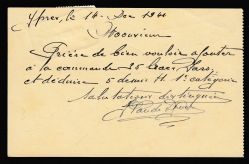 Ypres, le 14 Dec 1911
Monsieur
Prière de bien vouloir ajouter
à la commande 25
et déduire 5 demi H 1e catégorie
Salutations distinguées